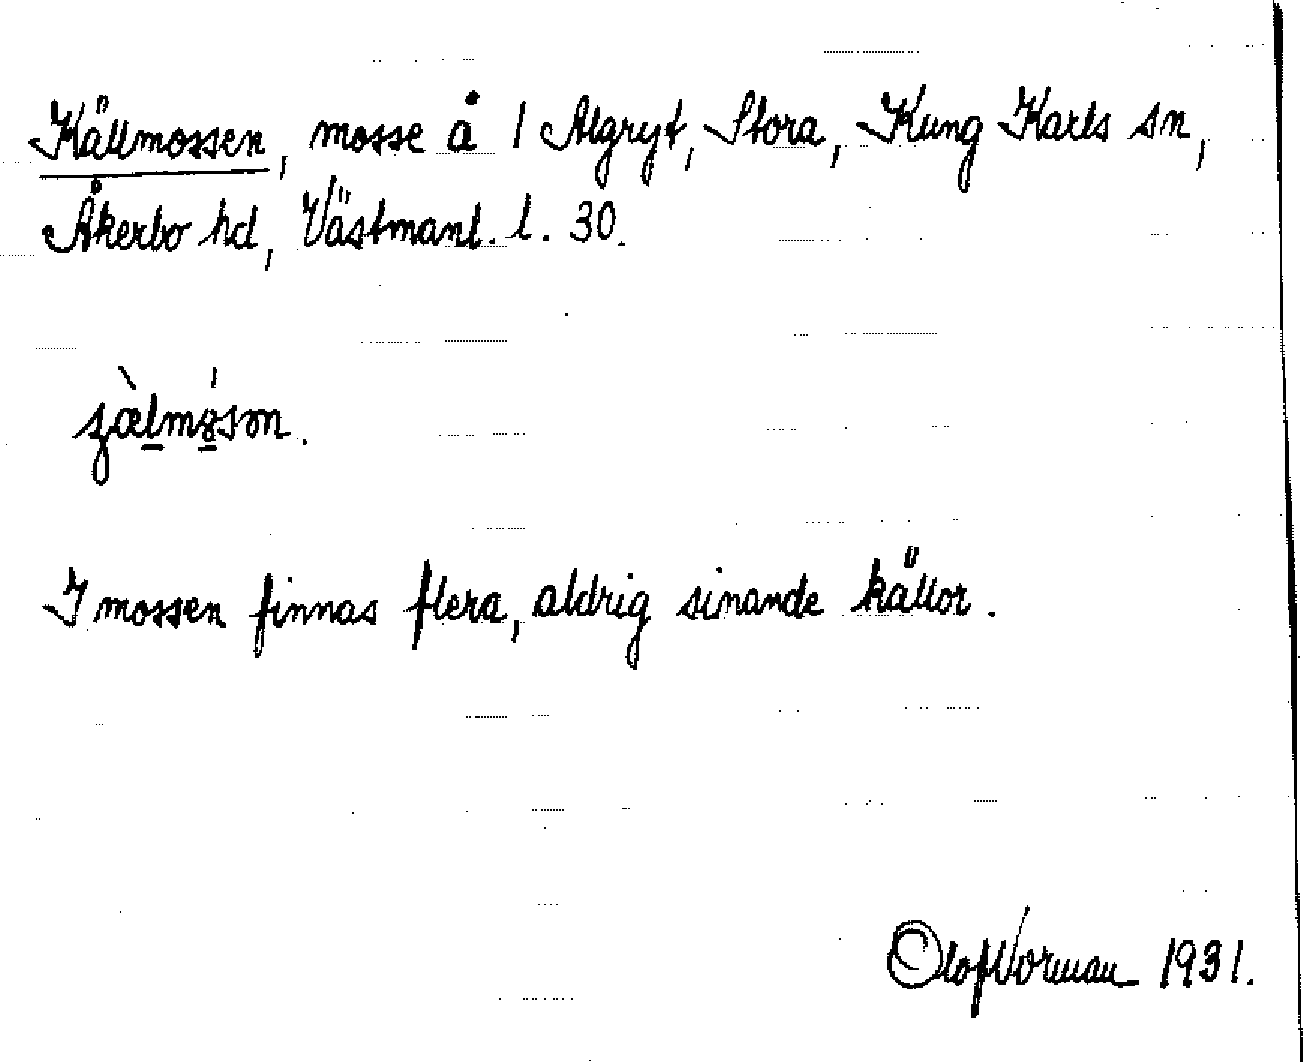 Källmossen, mosse å 1 Algryt, Stora, Kung Karls sn,
Åkerbo hd, Västmanl. l. 30.
I mossen finnas flera, aldrig sinande källor.
Olof Norman 1931.